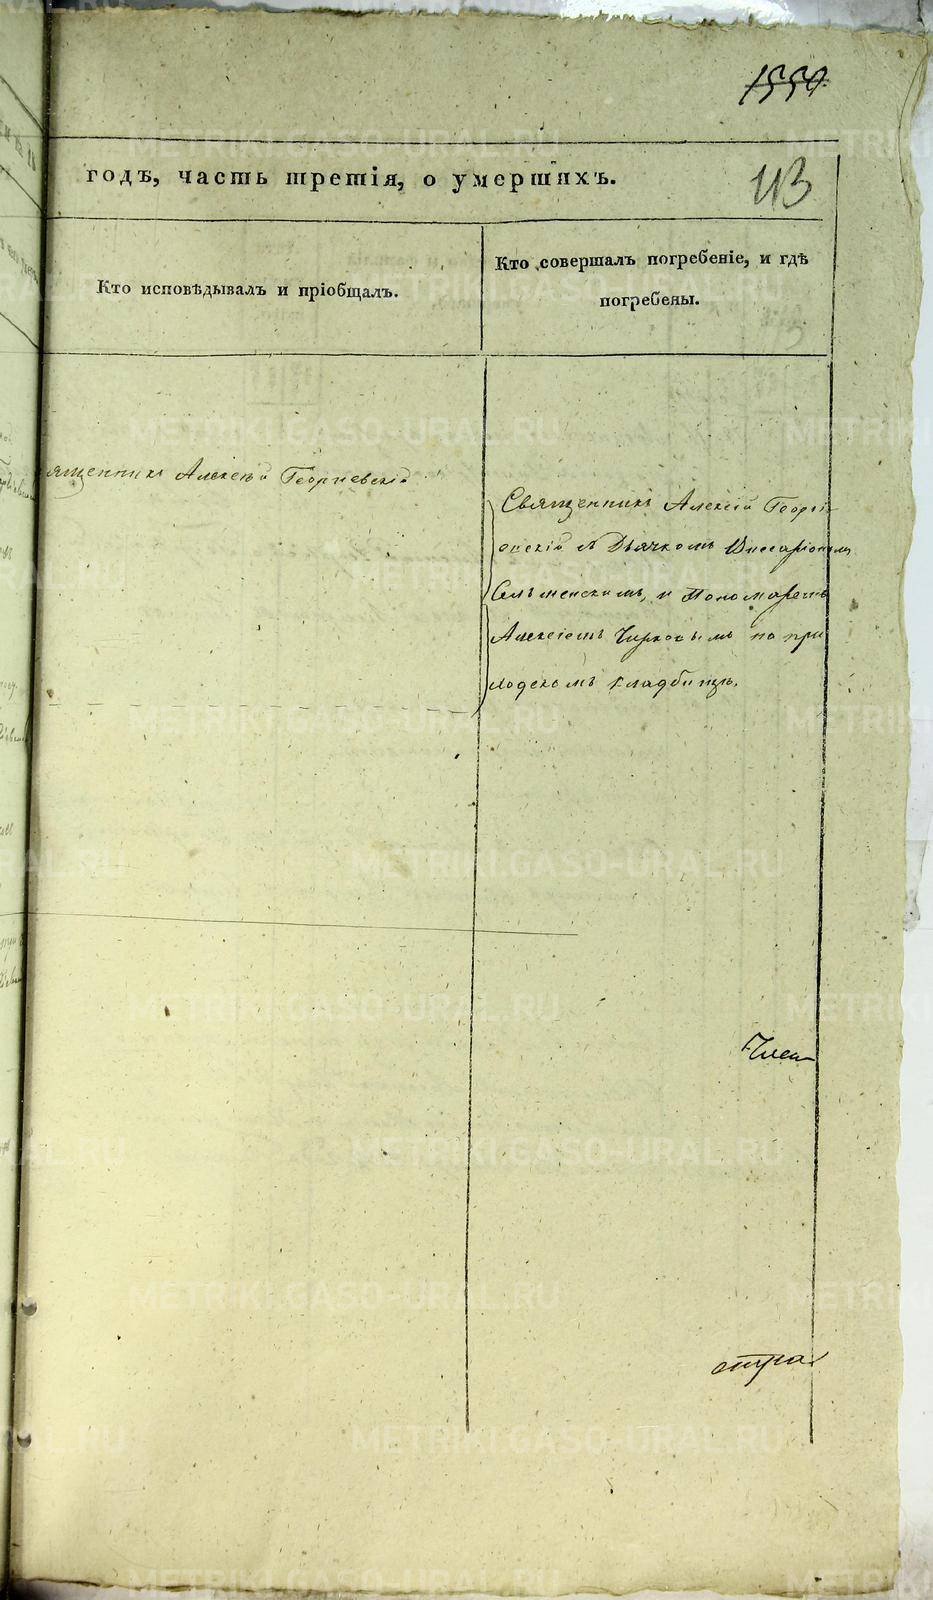 1550
годъ, часть третія, о умершихъ.
43
Кто исповѣдывалъ и пріобщалъ.
Кто совершалъ погребеніе, и гдѣ
погребены.
ященникъ Алексѣй Георгіевскій
Священникъ Алексій Георгі-
евскій с Дьячкомъ Виссаріономъ
и Пономаремъ
Алексіемъ Чирковымъ на при
ходскомъ кладбищѣ.
METRIKI.GASO-URAL.RU